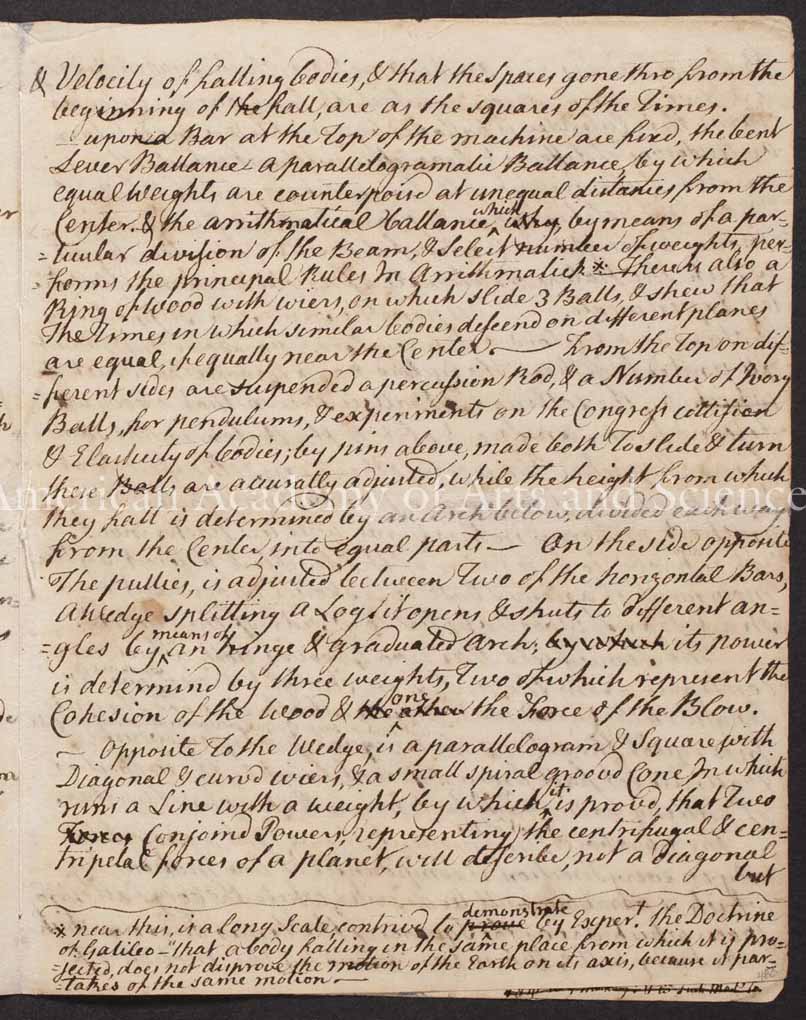 & Velocity of falling bodies, & that the spaces gone thro from the
beginning of the fall, are as the squares of the Times.
— upon a Bar at the Top of the machine are fixd, the bent
Lever Ballance - a parallelogramatic Ballance, by which
equal Weights are counterpoised at unequal distancies from the
Center. & the arrithmatical ballance, which by means of a par-
-ticular division of the Beam, & Select number of weights, per-
-forms the principal Rules In Arrithmatick * There is also a
Ring of wood with wiers, on which slide 3 Balls, & shew that
The Times in which similar bodies descend on different planes
are equal, if equally near the Center. — From the Top on dif-
-ferent sides are suspended a percussion Rod, & a Number of Ivory
Balls, for pendulums, & experiments on the Congress collision
& Elasticity of bodies; by pins above, made both To slide & turn
these Balls are acurally adjusted, while the height from which
they fall is determined by an Arch below, divided each way
from the Center, into equal parts — On the side opposite
The pullies, is adjusted between Two of the horizontal Bars,
A Wedge splitting a Log, it opens & shuts to different an-
-gles by means of an hinge & graduated Arch; by which its power
is determind by three weights, Two of which represent the
Cohesion of the Wood & the other one the Force of the Blow.
— Opposite To the Wedge, is a parallelogram & Square with
Diagonal & curvd wiers, & a small spiral groovd Cone In which
runs a Line with a weight, by which it is provd, that Two
Forces Conjoind Powers, representing the centrifugal & cen-
tripetal forces of a planet, will describe, not a Diagonal
but
* near this, is a long Scale contrivd to prove demonstrate by Expert. the Doctrine
of Galileo - "that a body falling in the same place from which it is pro-
-jected, does not disprove the motion of the Earth on its axis, because it par-
-takes of the same motion —
American Academy of Arts and Science